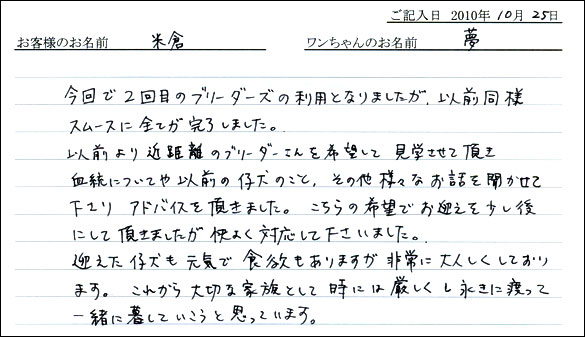 ご記入日 2010年10月25日
お客様のお名前 米倉 ワンちゃんのお名前 夢
今回で2回目のブリーダーズの利用となりましたが、以前同様
スムースに全てが完了しました。
以前より近距離のブリーダーさんを希望して見学させて頂き
血統についてや以前の仔犬のこと、その他様々なお話を聞かせて
下さり アドバイスを頂きました。こちらの希望でお迎えを少し後
にして頂きましたが快よく対応して下さいました。
迎えた仔犬も元気で食欲もありますが非常に大人しくしており
ます。これから大切な家族として時には厳しくし永きに渡って
一緒に暮していこうと思っています。